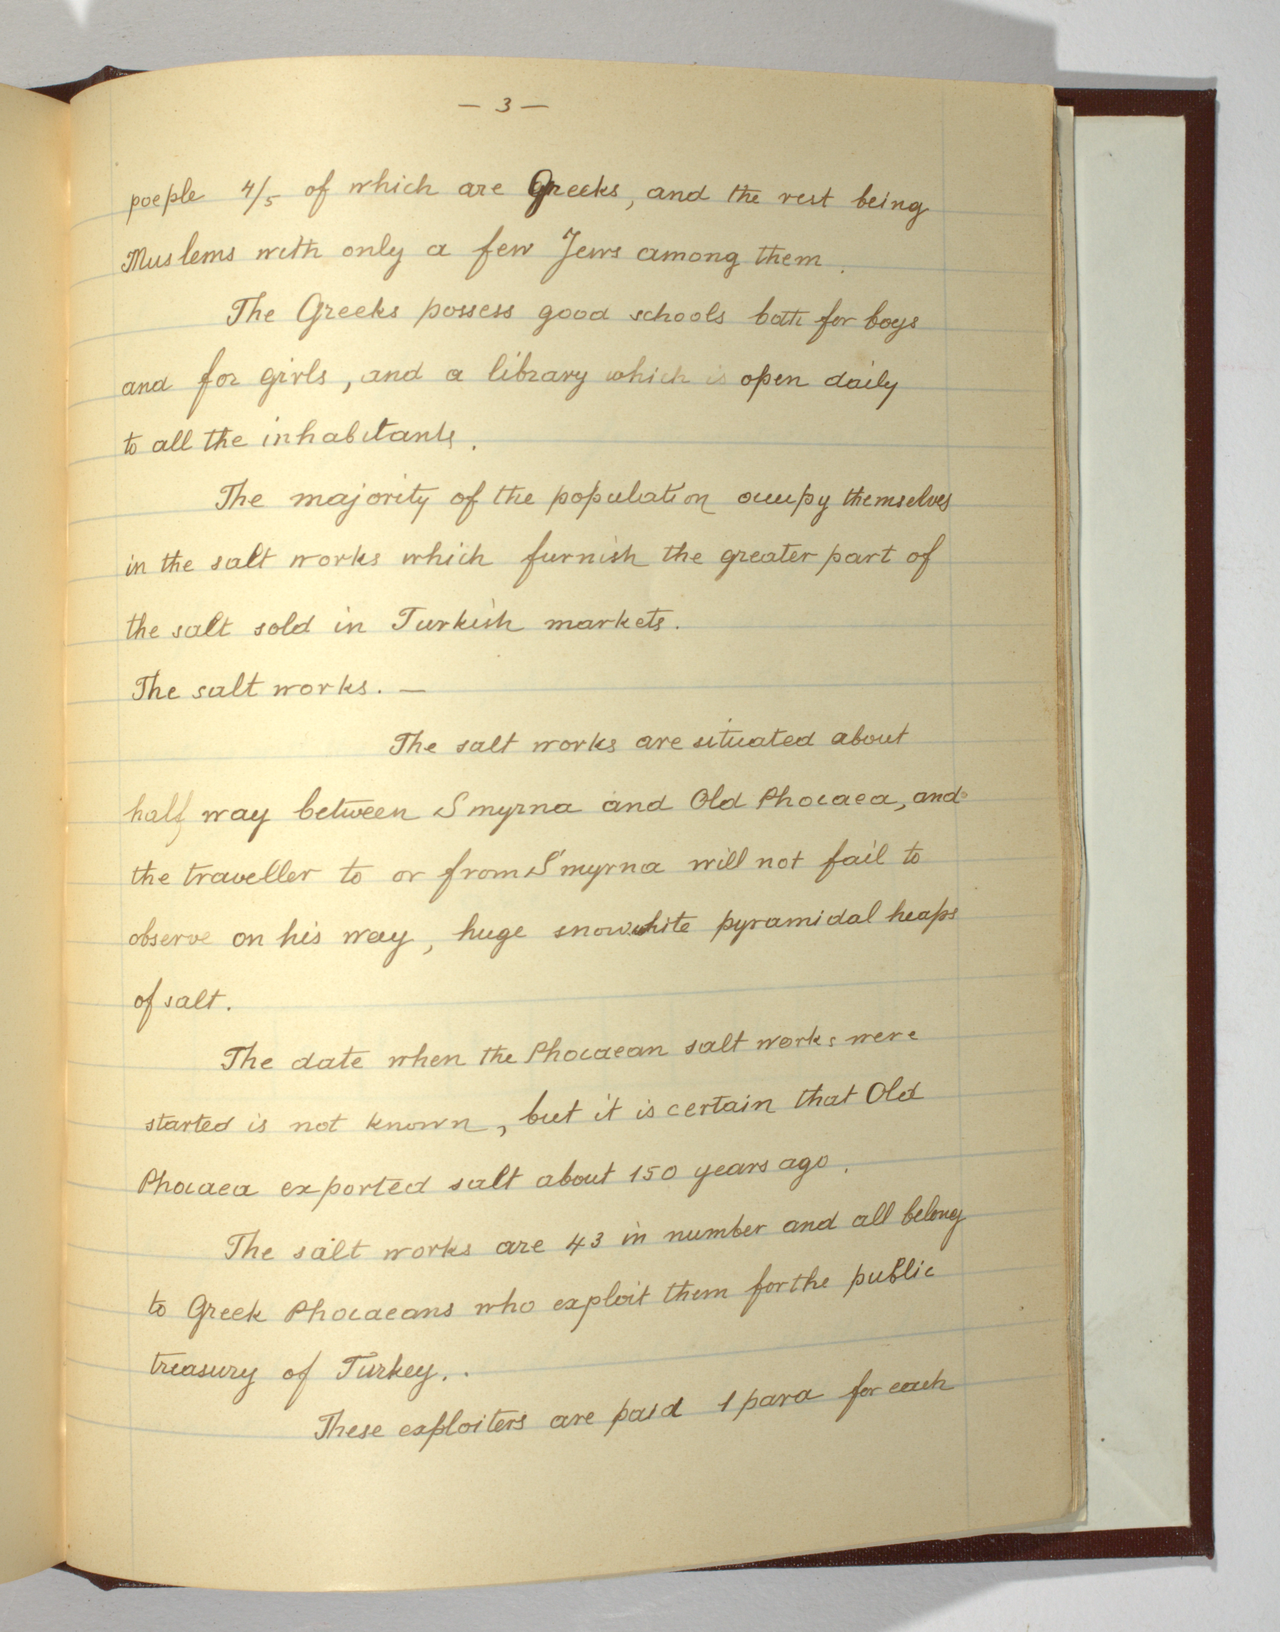 — 3 —
poeple 4/5 of which are Greeks, and the rest being
Muslems with only a few Jews among them.
The Greeks possess good schools both for boys
and for girls, and a library which is open daily
to all the inhabitants.
The majority of the population occupy themselves
in the salt works which furnish the greater part of
the salt sold in Turkish markets.
The salt works. —
The salt works are situated about
half way between Smyrna and Old Phocaea, and
the traveller to or from Smyrna will not fail to
observe on his way, huge snowwhite pyramidal heaps
of salt.
The date when the Phocaean salt works were
started is not known, but it is certain that Old
Phocaea exported salt about 150 years ago.
The salt works are 43 in number and all belong
to Greek Phocaeans who exploit them for the public
treasury of Turkey..
These exploiters are paid 1 para for each